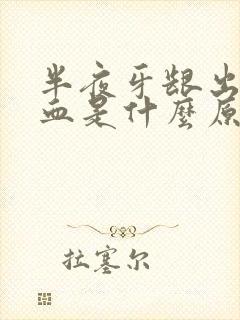 半夜牙龈出
血是什麼原
拉塞尔